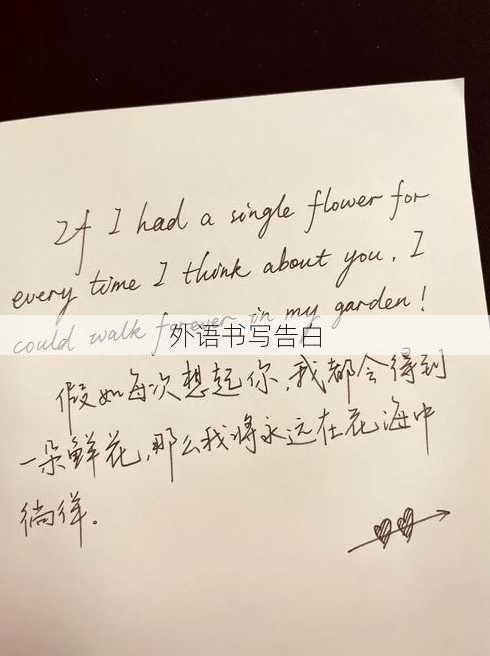 If I had a single flower for
every time I think about you, I
could walk forever in my garden!
外语书写告白
假如每次想起你,我都会得到
一朵鲜花,那么我将永远在花海中
徜徉。